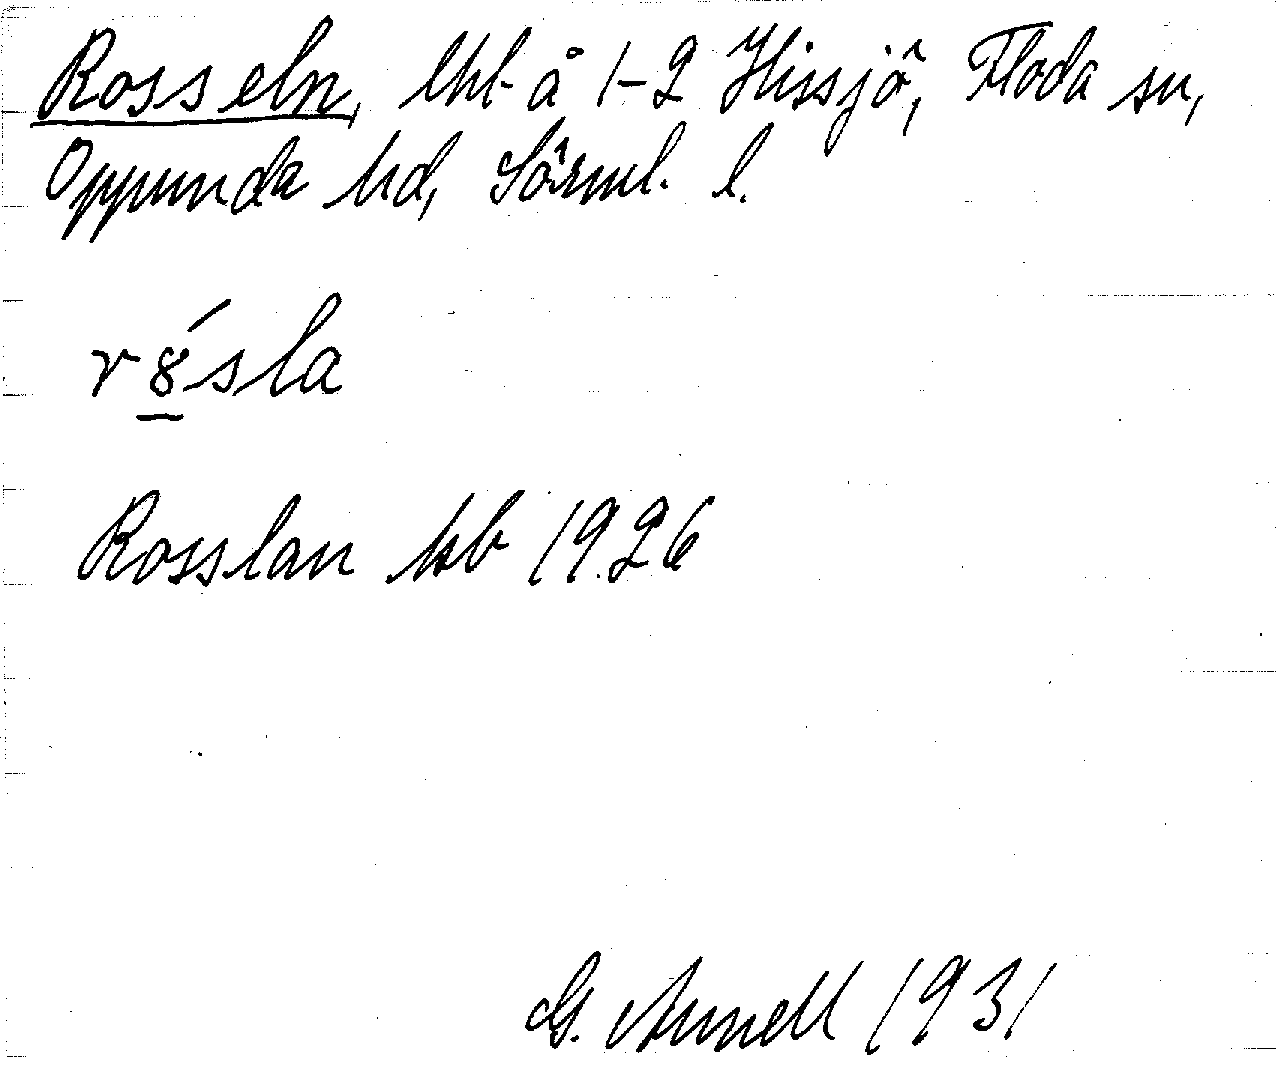 Rosseln, lht å 1-2 Hissjö, Floda sn,
Oppunda hd, Sörml. l.
rósla
Rosslan hb 1926
G. Annell 1931